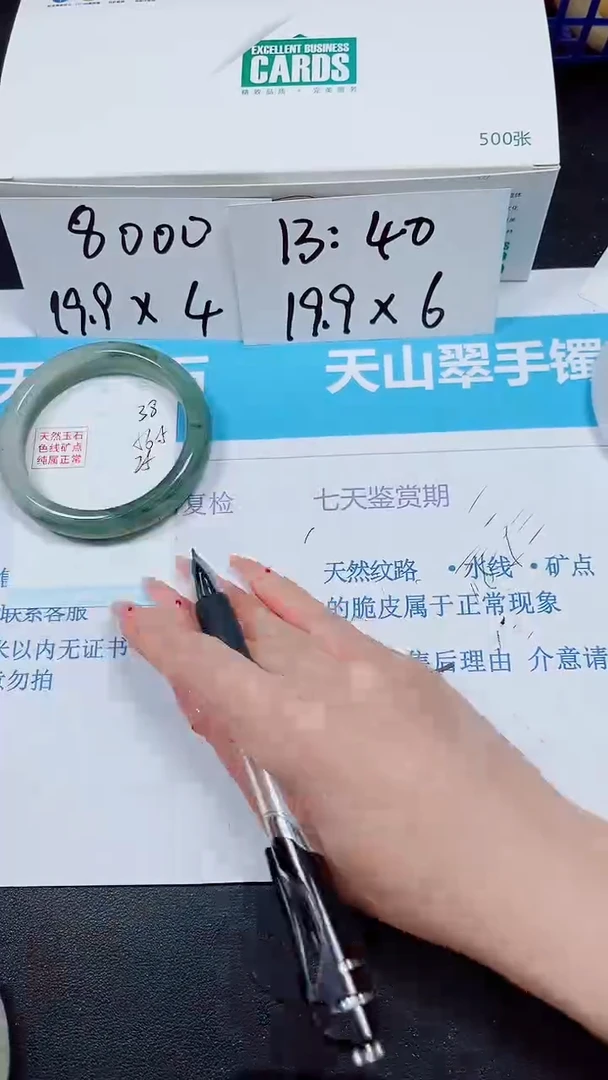 EXCELLENT BUSINESS
CARDS
精致品质 · 完美服务
500张
8000
19.9 x 4
13:40
19.9 x 6
天
石
天山翠手镯
38
25
天然玉石
色线矿点
纯属正常
复检
七天鉴赏期
天然纹路 · 水线 · 矿点
的脆皮属于正常现象
联系客服
米以内无证书
售后理由 介意请
勿拍